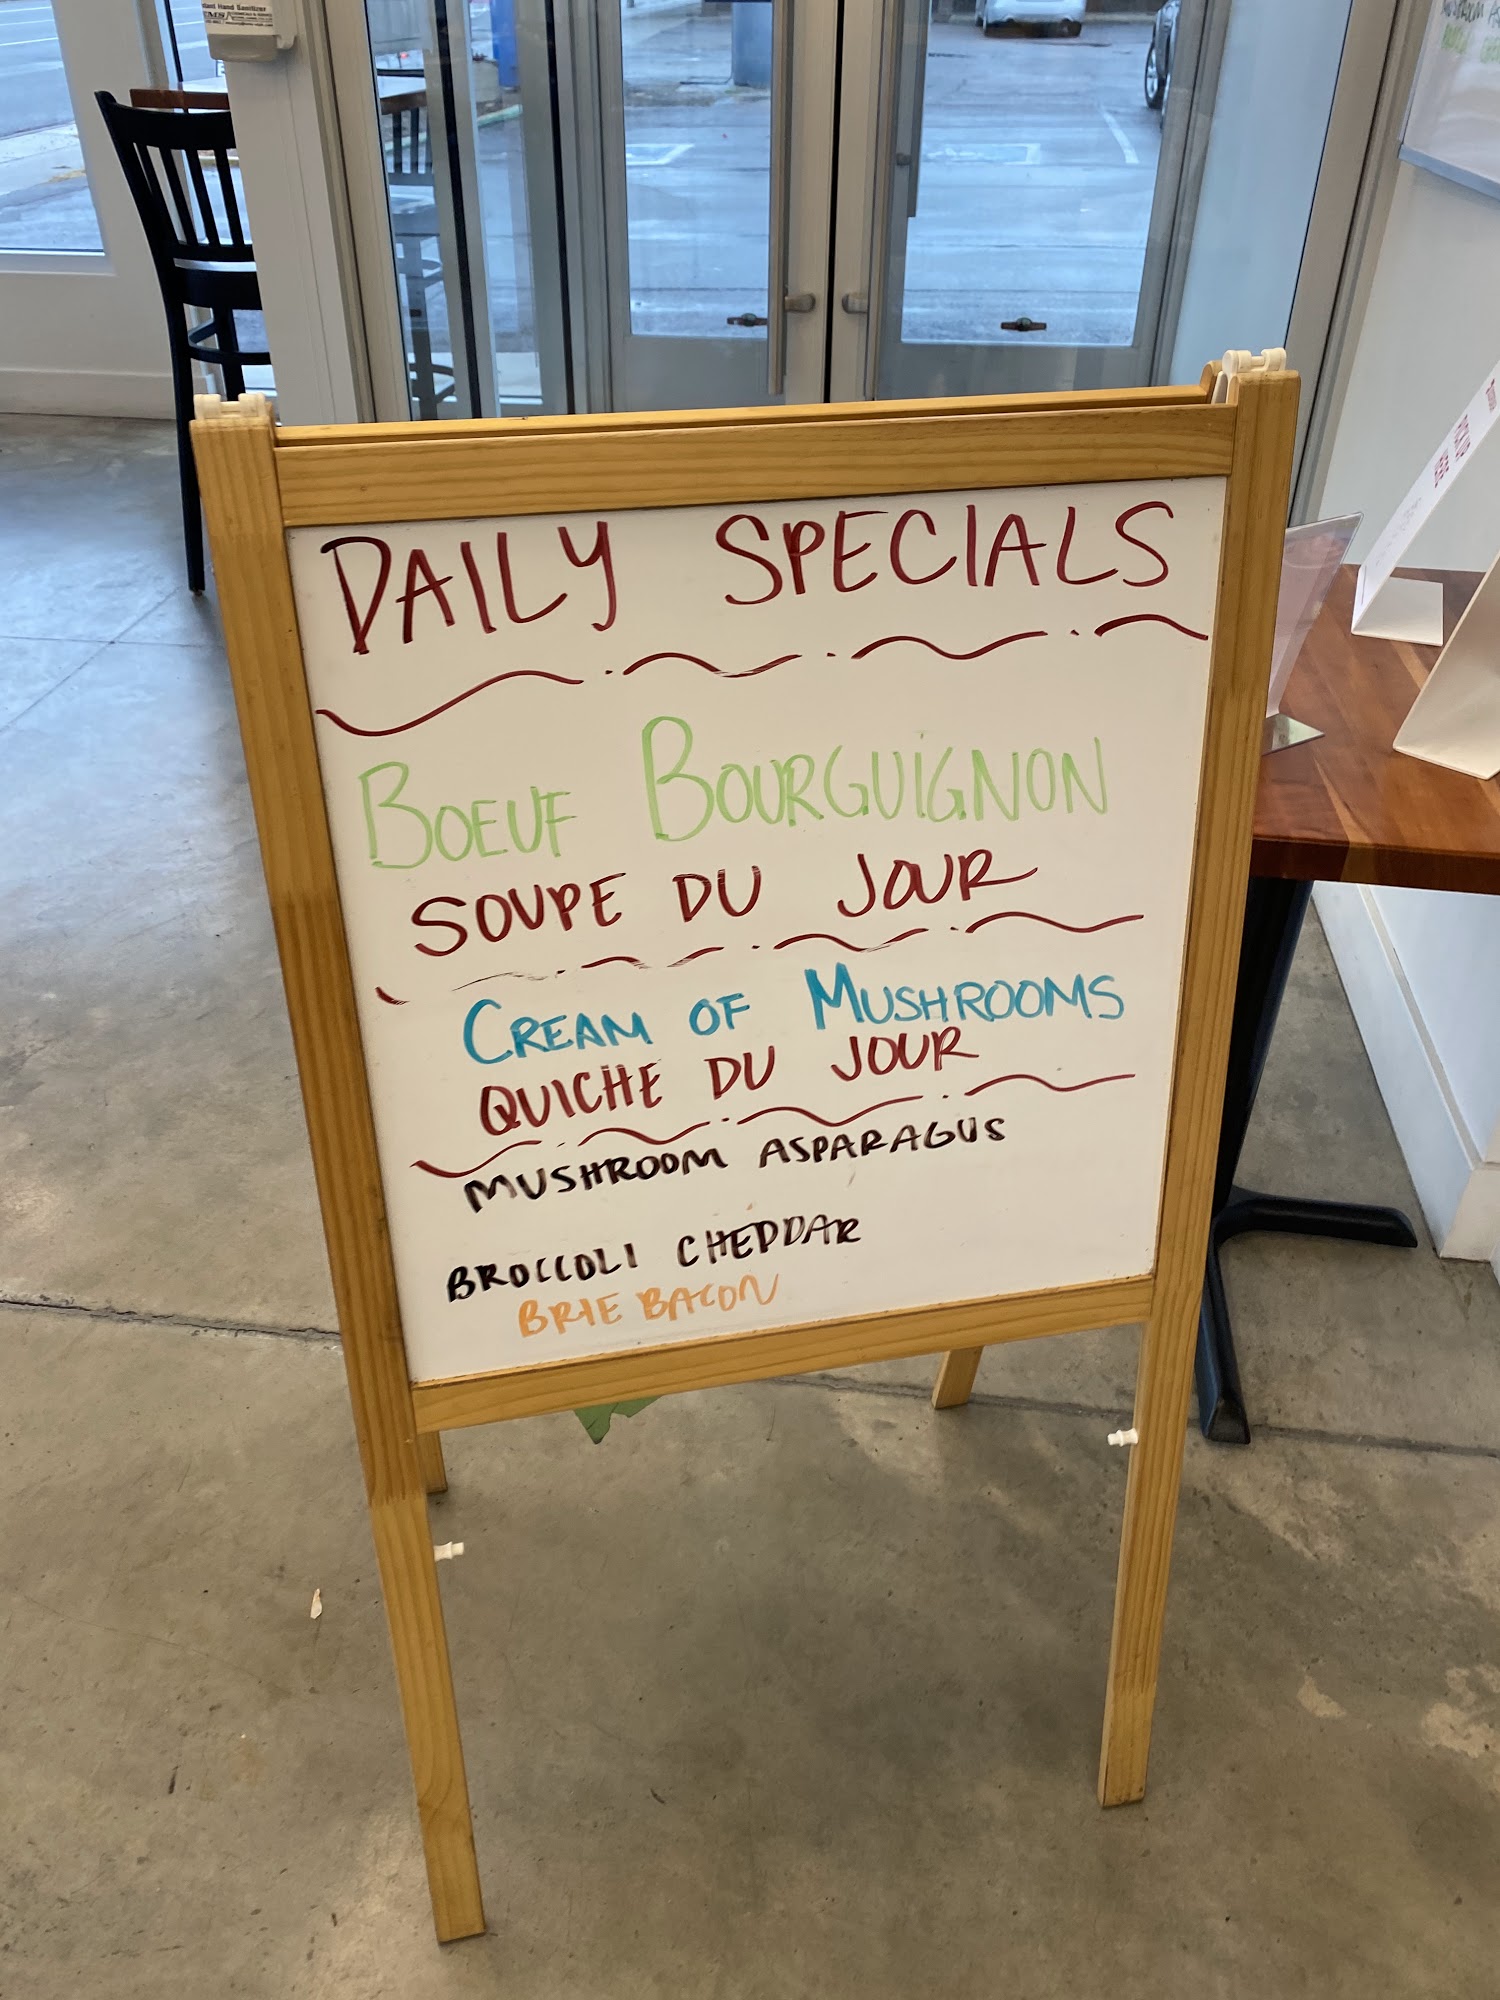 Instant Hand Sanitizer
DAILY SPECIALS
BOEUF BOURGUIGNON
SOUPE DU JOUR
CREAM OF MUSHROOMS
QUICHE DU JOUR
MUSHROOM ASPARAGUS
BROCCOLI CHEDDAR
BRIE BACON